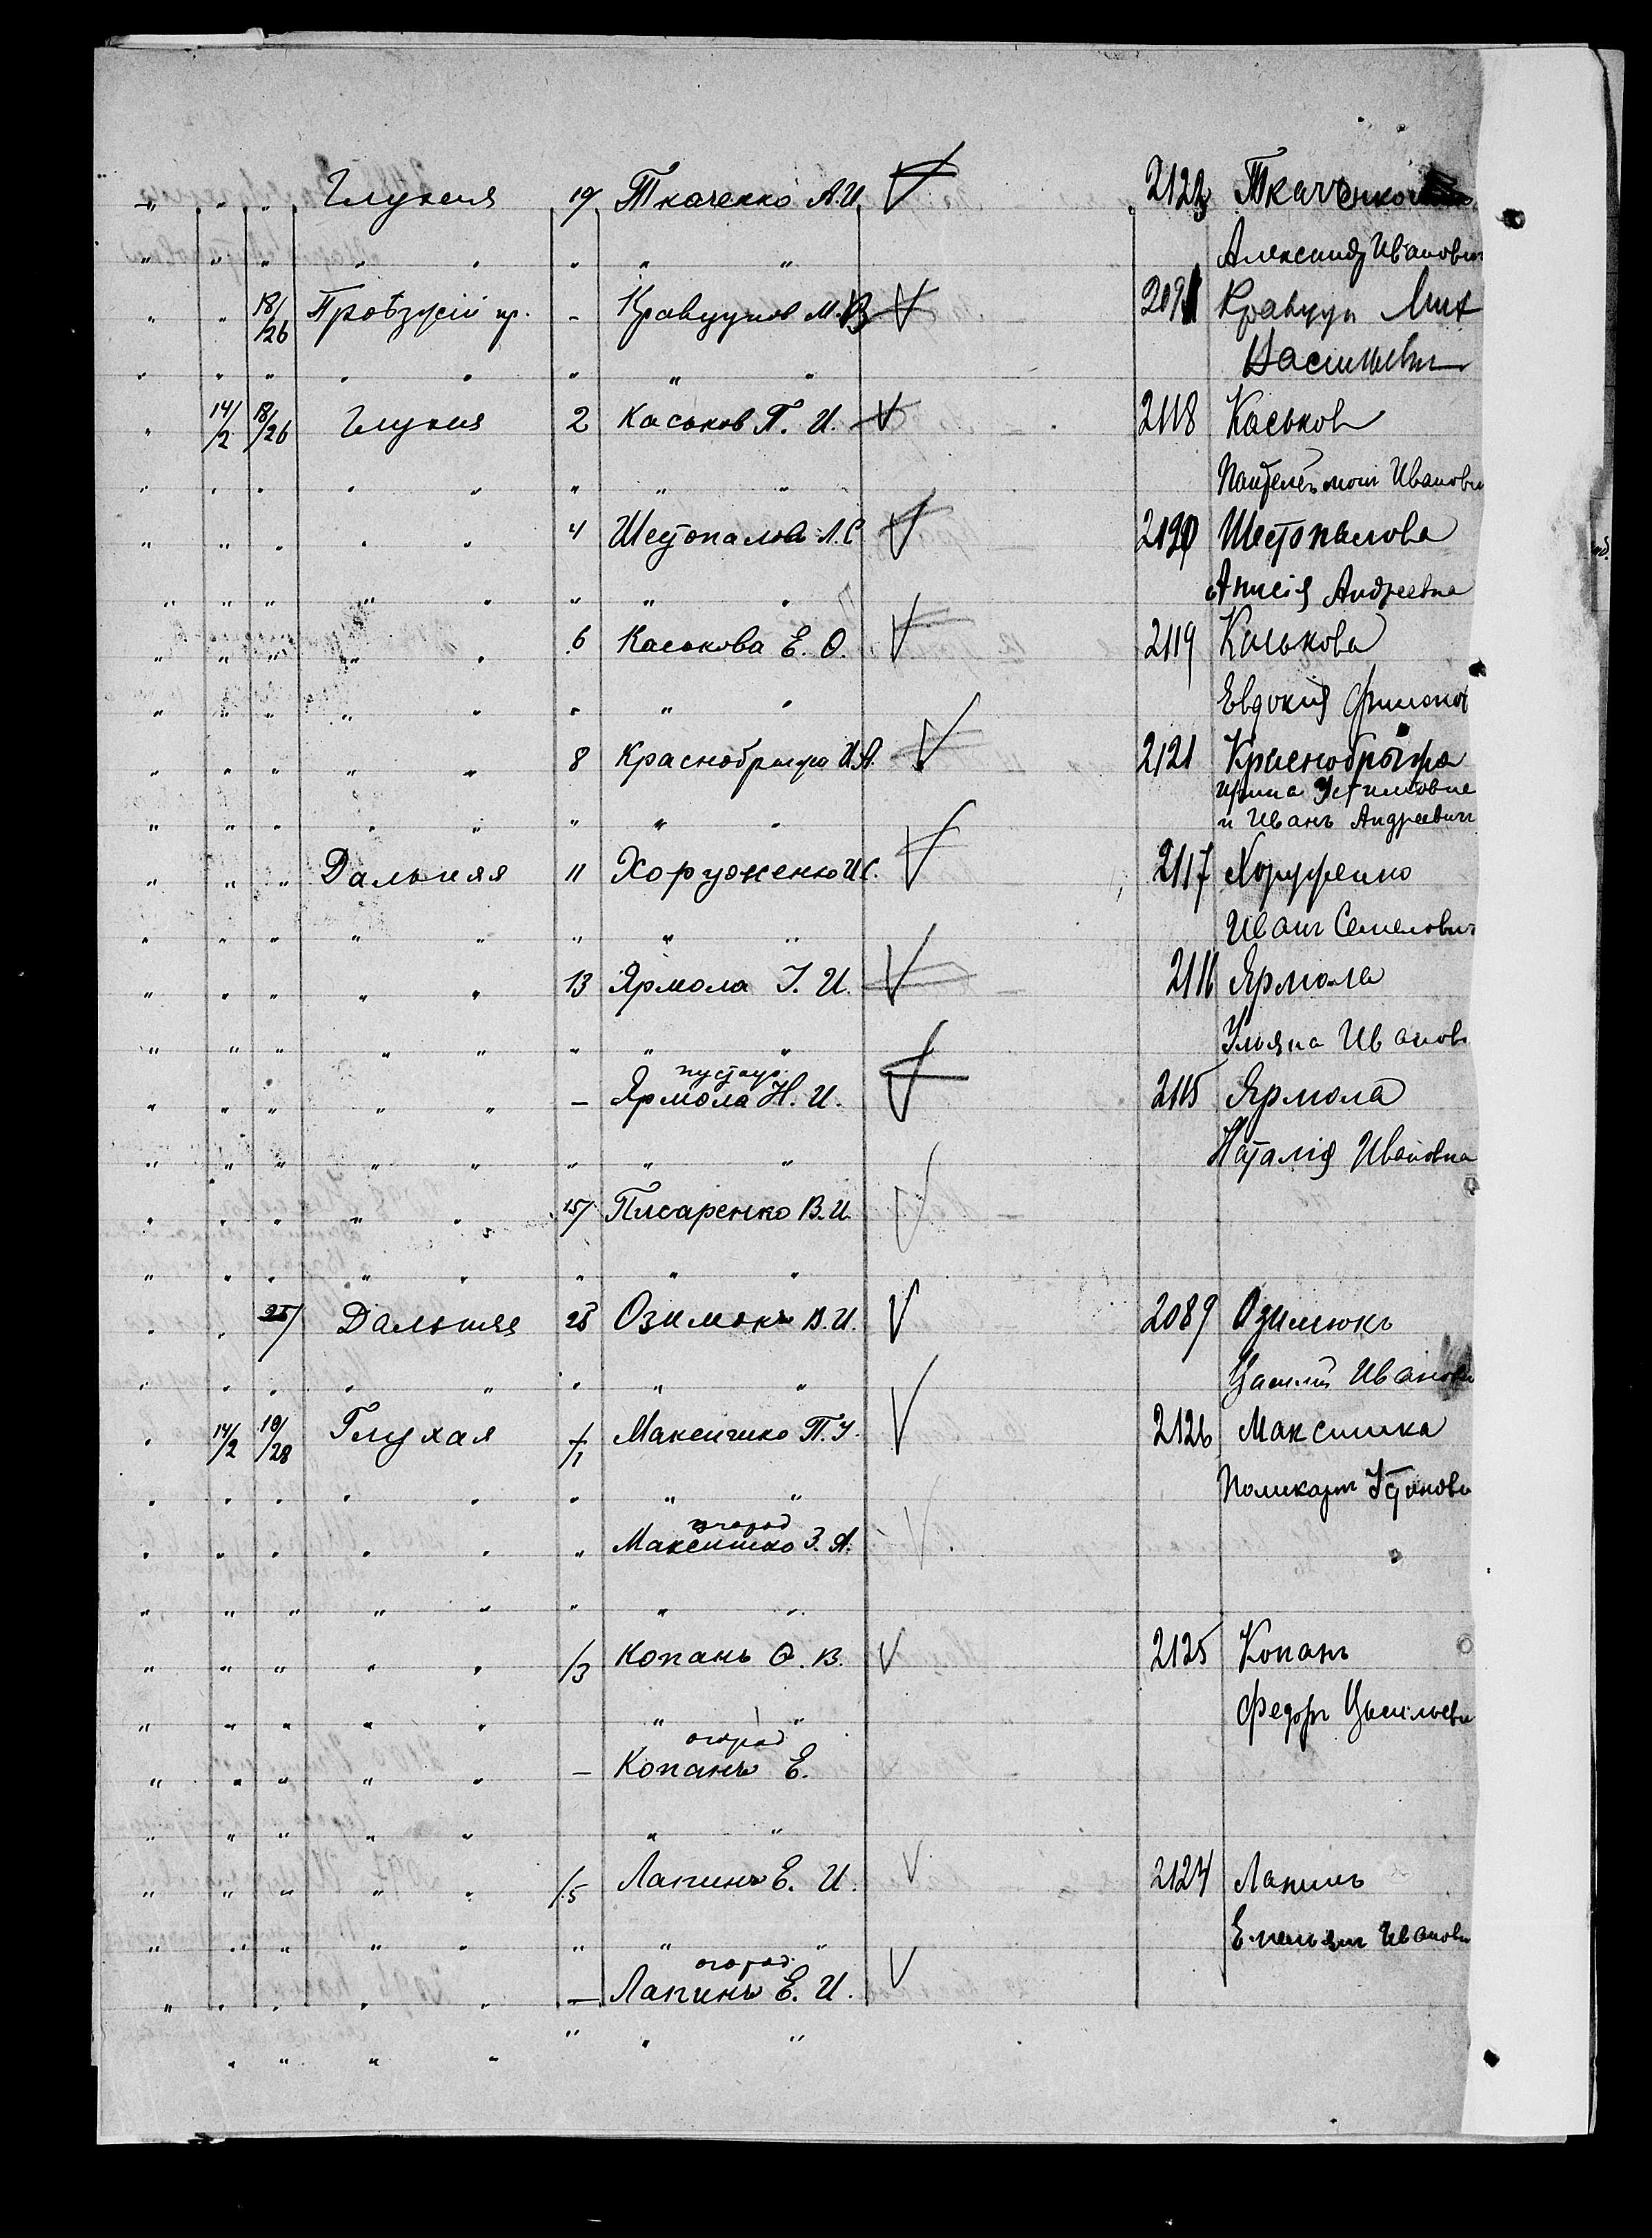 " " " Глухая 19 Ткаченко А.И. 2123 Ткаченко
" " " " " " " " Александр Иванович
" " 18/26 Проѣзжій пр. - Кравцунов М.В. 2091 Кравцун Мих
" " " " " " " " Васильевич
" 14/2 18/26 Глухая 2 Каськов П. И. 2118 Каськов
" " " " " " " " Пантелеѣмон Иванови
" " " " " 4 Шестопалова А.С. 2120 Шестопалова
" " " " " " " " Анисія Андреевна
" " " " " 6 Каськова Е. Ѳ. 2119 Каськова
" " " " " " " " Евдокия Филипов
" " " " " 8 Краснобрыжа И.А. 2121 Краснобрыжа
Ирина Устимовна
" " " " " " " " и Иванъ Андреевич
" " " Дальняя 11 Хоруженко И.С. 2117 Хоруженко
" " " " " " " " Иван Семенович
" " " " " 13 Ярмола У. И. 2116 Ярмола
" " " " " " " " Ульяна Иванов
пустош
" " " " " - Ярмола Н. И. 2115 Ярмола
" " " " " " " " Наталія Ивановна
" " " " " 15 Писаренко В.И.
" " " " " " " "
" " 25/ Дальняя 25 Озимокъ В.И. 2089 Озимокъ
" " " " " " " " Василій Иванови
" 14/2 19/28 Глухая /1 Максимко П.У. 2126 Максимка
" " " " " " " " Поликарп Устинови
огород
" " " " " " Максимко З. А.
" " " " " " " "
" " " " " /3 Копань Ѳ. В. 2125 Копань
" " " " " " " Федоръ Васильеви
огород
" " " " " - Копань Е.
" " " " " " "
" " " " " /5 Лапинъ Е. И. 2124 Лапинъ
" " " " " " " " Емельян Иванови
огород
" " " " " - Лапинъ Е. И.
" " " " " " "